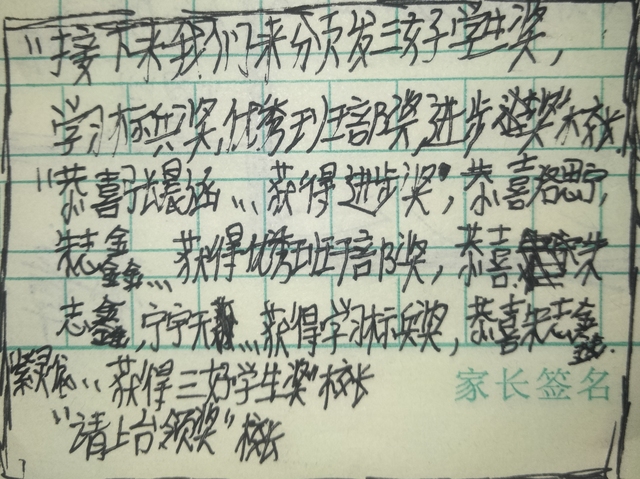 "接下来我们来分颁发三好学生奖,
学习标兵奖,优秀班部奖,进步奖"校长
"恭喜张晨涵…获得进步奖",恭喜洛思宁,
朱志鑫…获得优秀班部奖,恭喜朱
志鑫,宁宇天…获得学习标兵奖,恭喜朱志鑫
紫灵…获得三好学生奖"校长
家长签名
"请上台领奖"校长